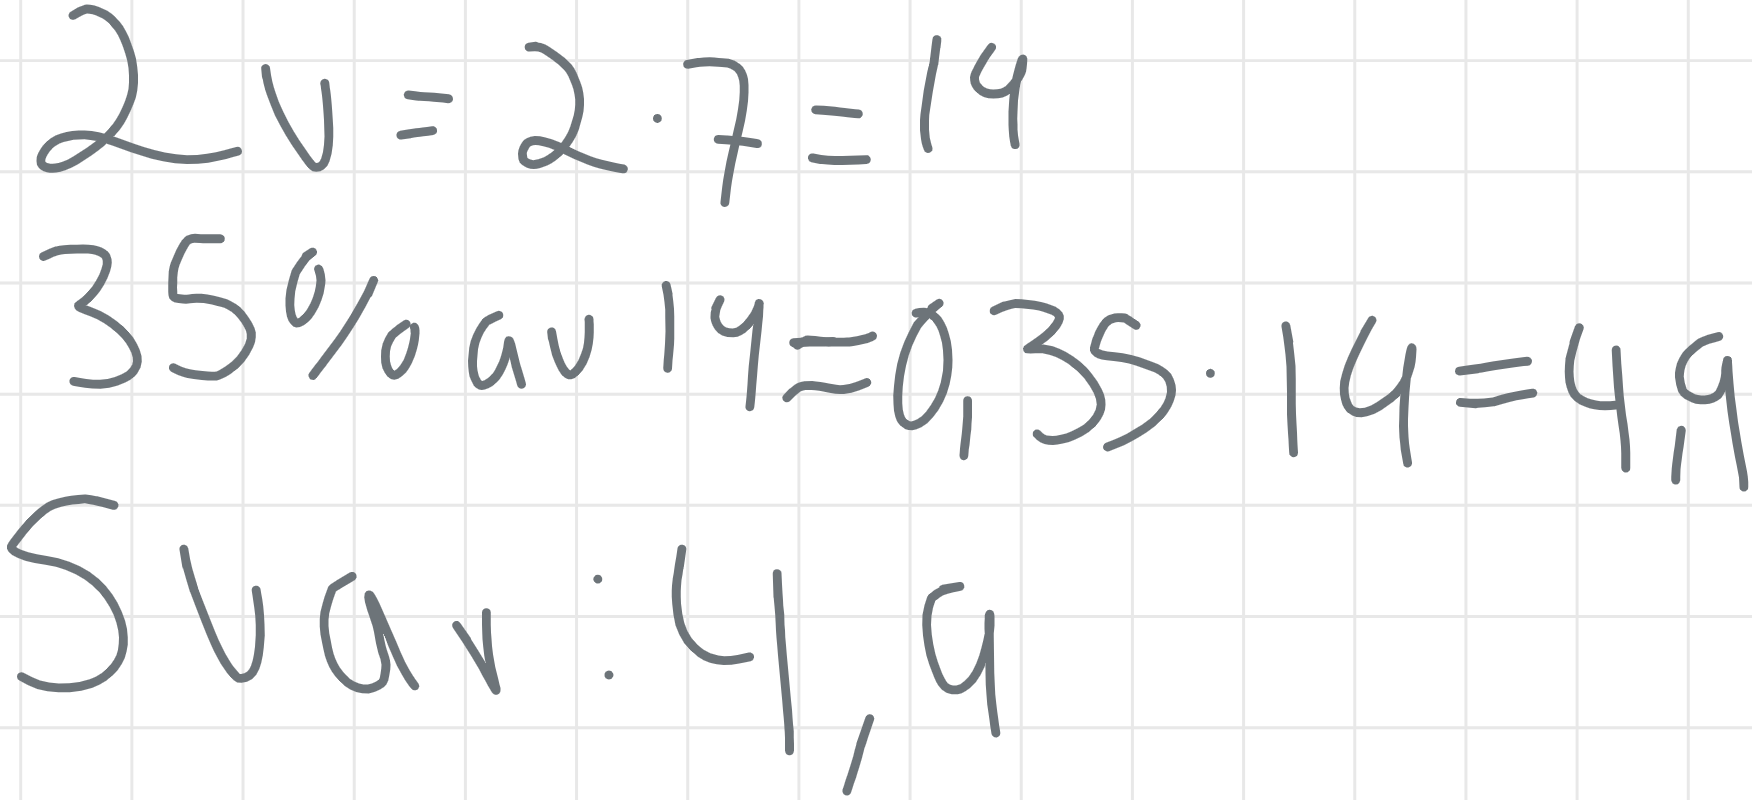 2 v = 2 · 7 = 14
35% av 14 = 0,35 · 14 = 4,9
Svar : 4,9